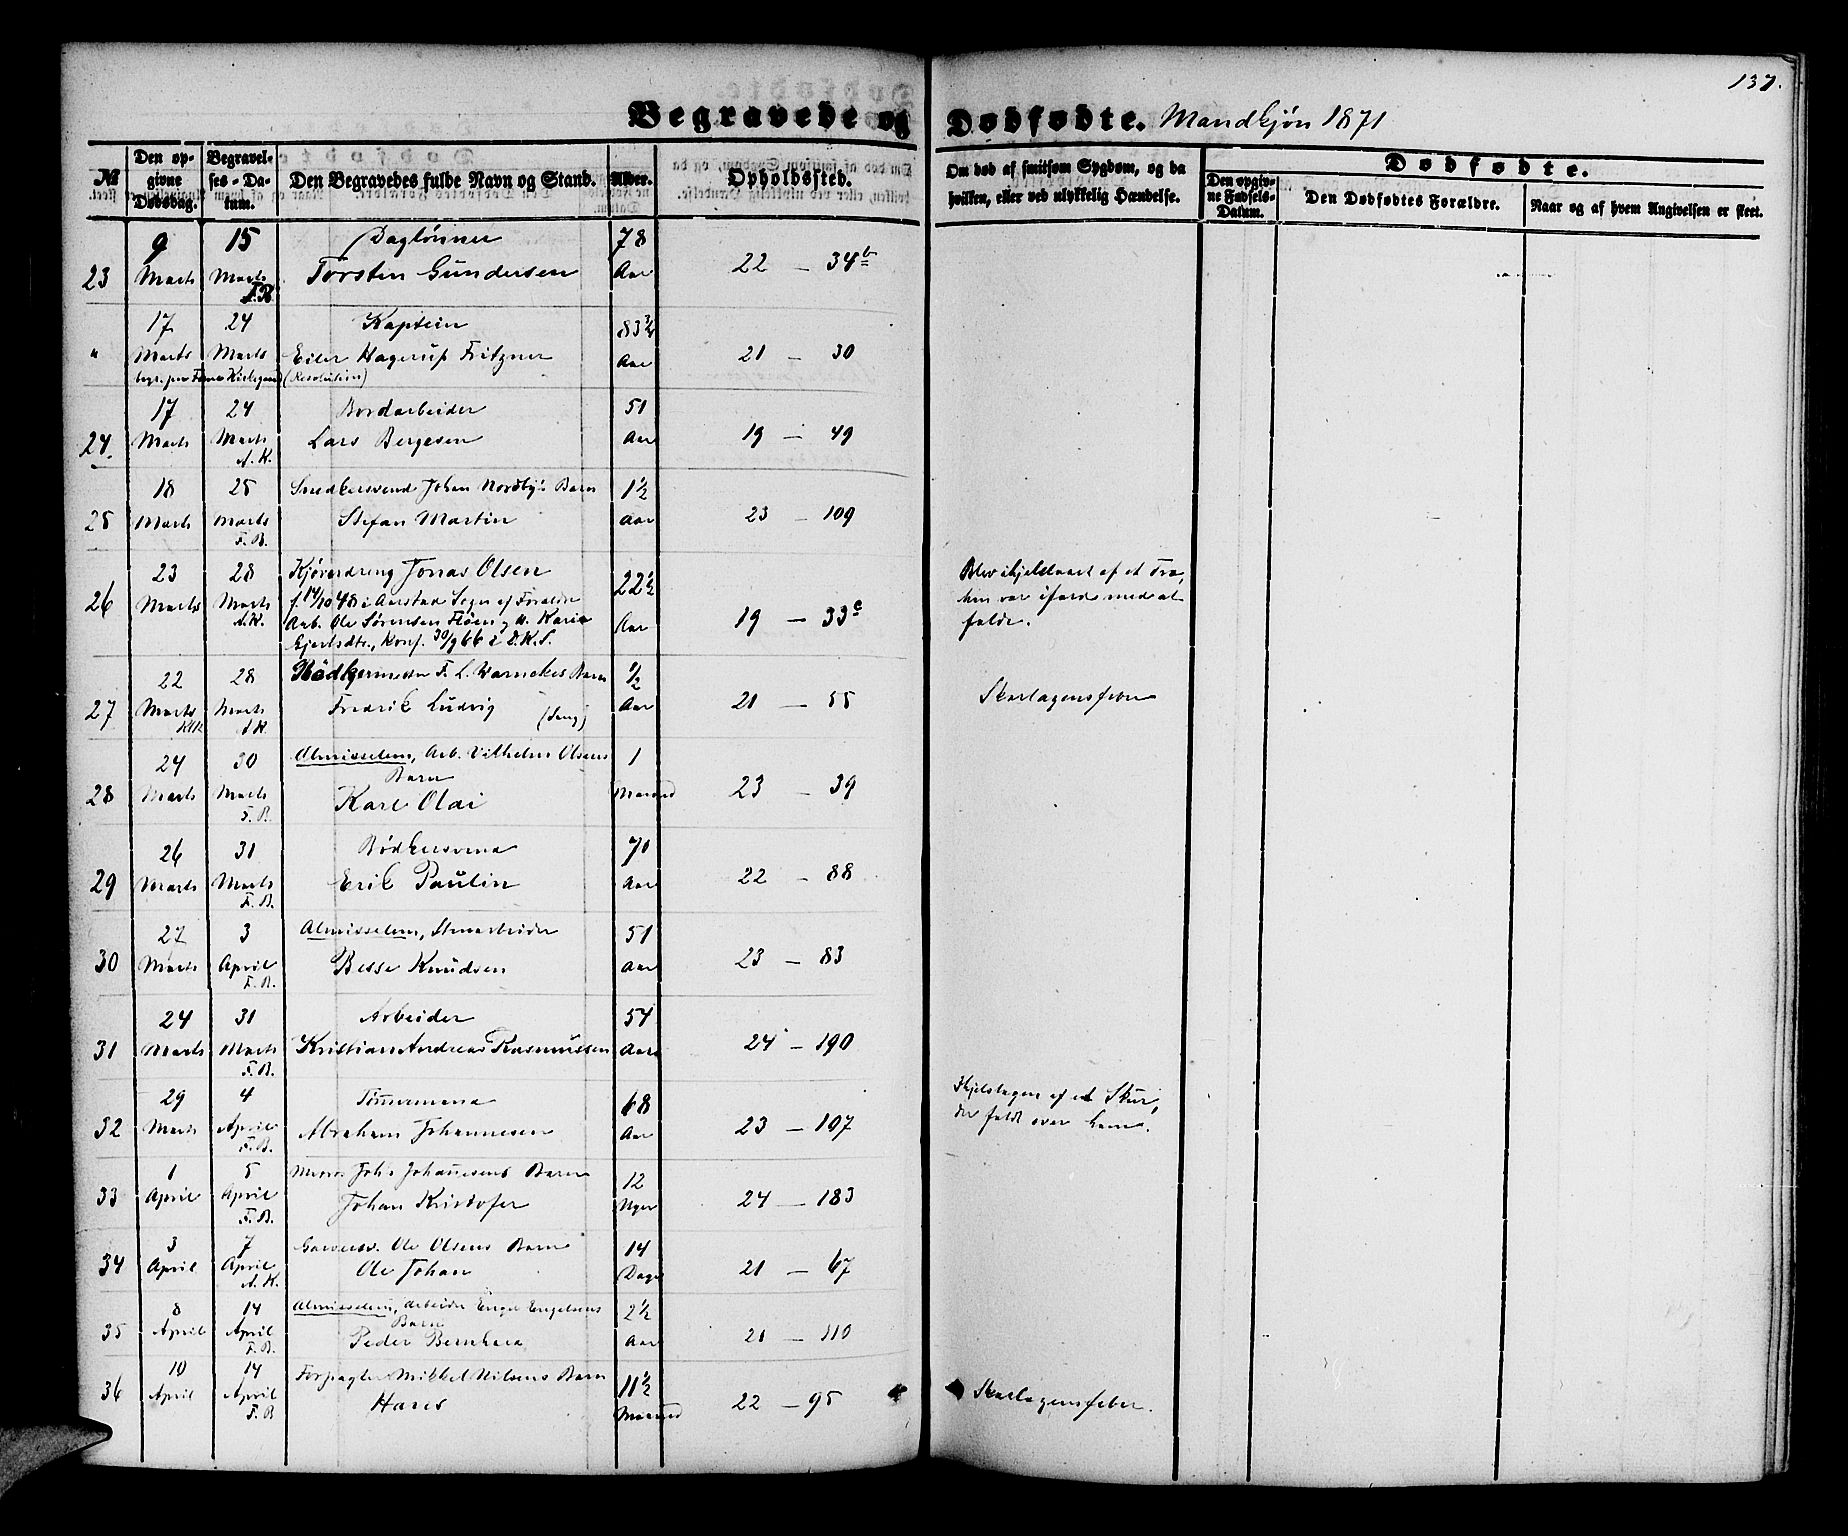 137.
Begravede og Dødfødte. Mandkjøn 1871
№
Den opgivne Dødsdag.
Begravelses-Datum.
Den Begravedes fulde Navn og Stand.
Alder.
Opholdssted.
Om død af smitsom Sygdom, og da hvilken, eller ved ulykkelig Hændelse.
Dødfødte.
Den opgivne Fødsels-Datum.
Den Dødfødtes Forældre.
Naar og af hvem Angivelsen er skeet.
9 15 Dagbønner 78
23 Marts Marts Torsten Gundersen Aar 22 — 34b
F.B.
17 24 Kaptein 83 3/4
" Marts Marts Eiler Hagerup Fritzner Aar 21 — 30
(Resolution)
17 24 Bordarbeider 51
24. Marts Marts Lars Bergesen Aar 19 — 49
A.K.
18 25 Snedkersvend Johan Nordby's Barn 1 1/2
25 Marts Marts Stefan Martin Aar 23 — 109
F.B.
23 28 Kjøredreng Jonas Olsen 22 1/2
26 Marts Marts f. 14/10 48 i Aarstad Sogn af Forældre
A.K. Arb. Ole Sørensen Fløen og H. Karia Aar 19 — 33c
Gjertsdtr., konf. 30/9 66 i D.K.S.
Blev ihjelslaaet af et Træ,
han var ifærd med at
fælde.
22 28 Bødkermester F. L. Warnckes Barn 1/2
27 Marts Marts Fredrik Ludvig Aar 21 — 55 Skarlagensfeber
KlK A.K.
24 30 Almisselem, Arb. Vilhelm Olsens 1
Barn
28 Marts Marts Karl Olai Maaned 23 — 39
F.B.
26 31 Bødkersvend 70
29 Marts Marts Erik Paulin Aar 22 — 88
F.B.
27 3 Almisselem, Stenarbeider 51
30 Marts April Besse Knudsen Aar 23 — 83
F.B.
24 31 Arbeider 54
31 Marts Marts Kristian Andreas Rasmussen Aar 24 — 190
F.B.
29 4 Tømmermand 68
32 Marts April Abraham Johannesen Aar 23 — 107
F.B.
Ihjelslagen af et Skur,
der faldt over ham.
1 5 Johs Johannesens Barn 12
33 April April Johan Kristofer Uger 24 — 183
F.B.
3 7 Garversv. Ole Olsens Barn 14
34 April April Ole Johan Dage 21 — 67
A.K.
8 14 Almisselem, Arbeider Engel Engelsens 2 1/2
Barn
35 April April Peder Bernhard Aar 21 — 110
F.B.
10 14 Forpagter Mikkel Nilsens Barn 11 1/2
36 April April Hans Maaned 22 — 95 Skarlagensfeber.
F.B